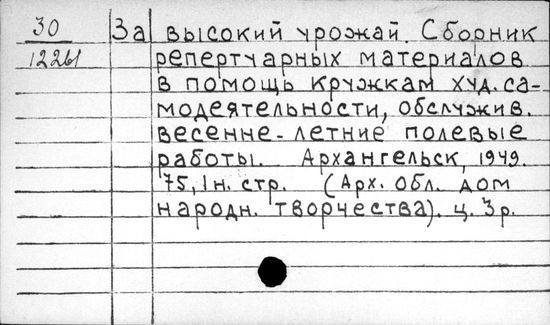 30 За высокий урожай. Сборник
12261 репертуарных материалов
в помощь кружкам худ. са-
модеятельности, обслужив.
весенне-летние полевые
работы. Архангельск, 1949.
75, 1 н. стр. (Арх. обл. дом
народн. творчества). ц. 3 р.